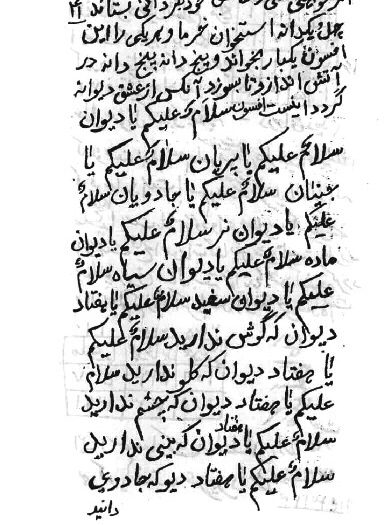 چهل یکدانه استخوان خرما و بر یکی را این
افسون یکبار بخواند و پنج دانه پنج دانه در
آتش اندازد تا بسوزد آنکس از عشق دیوانه
گردد اینست افسون سلامٌ علیکم یا دیوان
سلامٌ علیکم یا پریان سلامٌ علیکم یا
جنیان سلامٌ علیکم یا جادویان سلامٌ
علیکم یا دیوان نر سلامٌ علیکم یا دیوان
ماده سلامٌ علیکم یا دیوان سیاه سلامٌ
علیکم یا دیوان سفید سلامٌ علیکم یا هفتاد
دیوان که گوش ندارید سلامٌ علیکم
یا هفتاد دیوان که گلو ندارید سلام
علیکم یا هفتاد دیوان که چشم ندارید
سلامٌ علیکم یا هفتاد دیوان که بینی ندارید
سلامٌ علیکم یا هفتاد دیو که جادوی
دانید